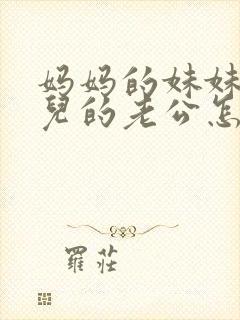 妈妈的妹妹
兒的老公怎
羅莊